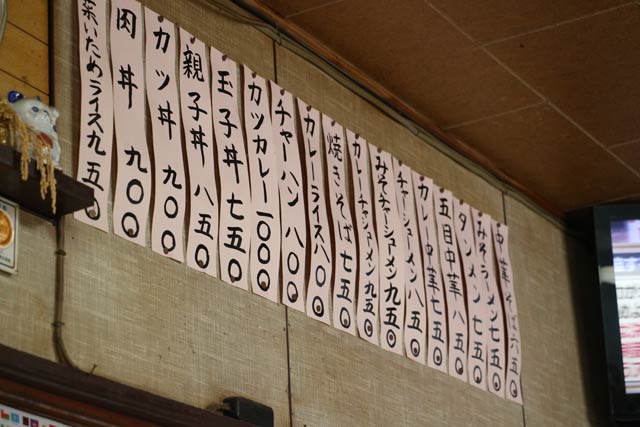 中華そば 六五〇
みそラーメン 七五〇
タンメン 七五〇
五目中華 八五〇
カレー中華 七五〇
チャーシューメン 八五〇
みそチャーシューメン 九五〇
カレーチャーシューメン 九五〇
焼きそば 七五〇
カレーライス 八〇〇
チャーハン 八〇〇
カツカレー 一〇〇〇
玉子丼 七五〇
親子丼 八五〇
カツ丼 九〇〇
肉丼 九〇〇
菜いためライス 九五〇